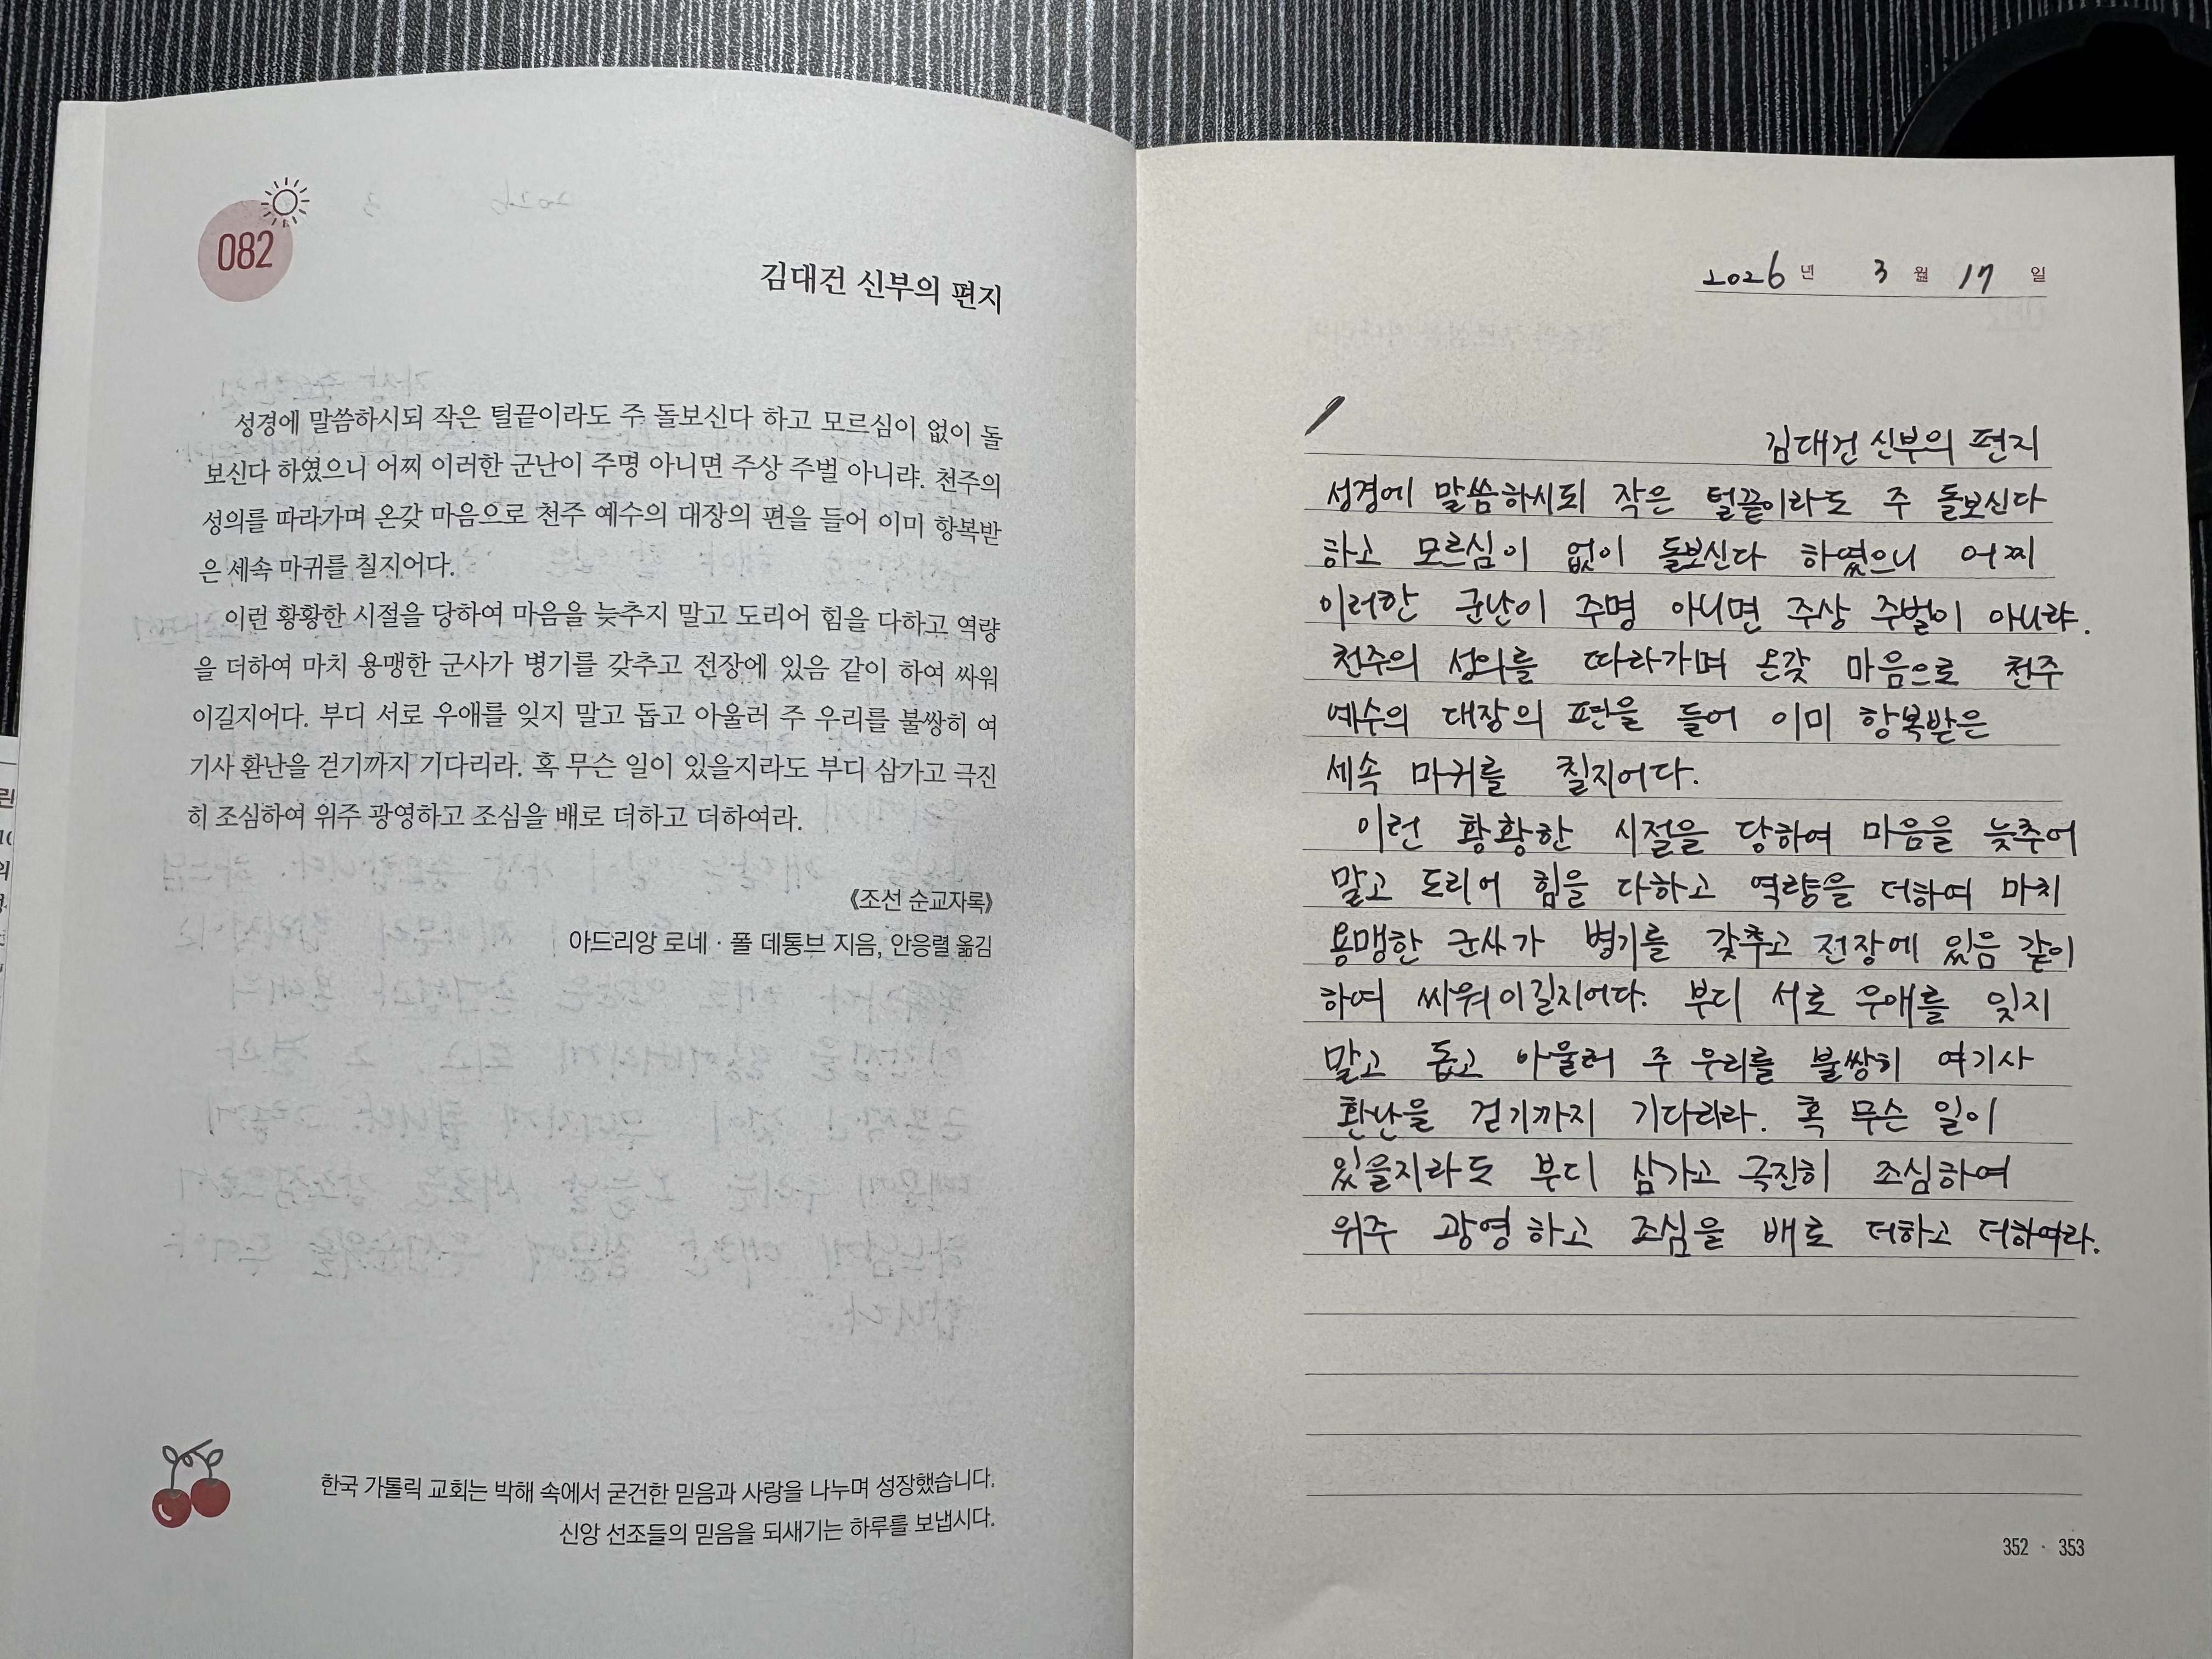 082
김대건 신부의 편지
성경에 말씀하시되 작은 털끝이라도 주 돌보신다 하고 모르심이 없이 돌
보신다 하였으니 어찌 이러한 군난이 주명 아니면 주상 주벌 아니랴. 천주의
성의를 따라가며 온갖 마음으로 천주 예수의 대장의 편을 들어 이미 항복받
은 세속 마귀를 칠지어다.
이런 황황한 시절을 당하여 마음을 늦추지 말고 도리어 힘을 다하고 역량
을 더하여 마치 용맹한 군사가 병기를 갖추고 전장에 있음 같이 하여 싸워
이길지어다. 부디 서로 우애를 잊지 말고 돕고 아울러 주 우리를 불쌍히 여
기사 환난을 걷기까지 기다리라. 혹 무슨 일이 있을지라도 부디 삼가고 극진
히 조심하여 위주 광영하고 조심을 배로 더하고 더하여라.
《조선 순교자록》
아드리앙 로네 · 폴 데통브 지음, 안응렬 옮김
한국 가톨릭 교회는 박해 속에서 굳건한 믿음과 사랑을 나누며 성장했습니다.
신앙 선조들의 믿음을 되새기는 하루를 보냅시다.
2026년 3월 17일
김대건 신부의 편지
성경에 말씀하시되 작은 털끝이라도 주 돌보신다
하고 모르심이 없이 돌보신다 하였으니 어찌
이러한 군난이 주명 아니면 주상 주벌이 아니랴.
천주의 성의를 따라가며 온갖 마음으로 천주
예수의 대장의 편을 들어 이미 항복받은
세속 마귀를 칠지어다.
이런 황황한 시절을 당하여 마음을 늦추어
말고 도리어 힘을 다하고 역량을 더하여 마치
용맹한 군사가 병기를 갖추고 전장에 있음 같이
하여 싸워 이길지어다. 부디 서로 우애를 잊지
말고 돕고 아울러 주 우리를 불쌍히 여기사
환난을 걷기까지 기다리라. 혹 무슨 일이
있을지라도 부디 삼가고 극진히 조심하여
위주 광영하고 조심을 배로 더하고 더하여라.
352 · 353